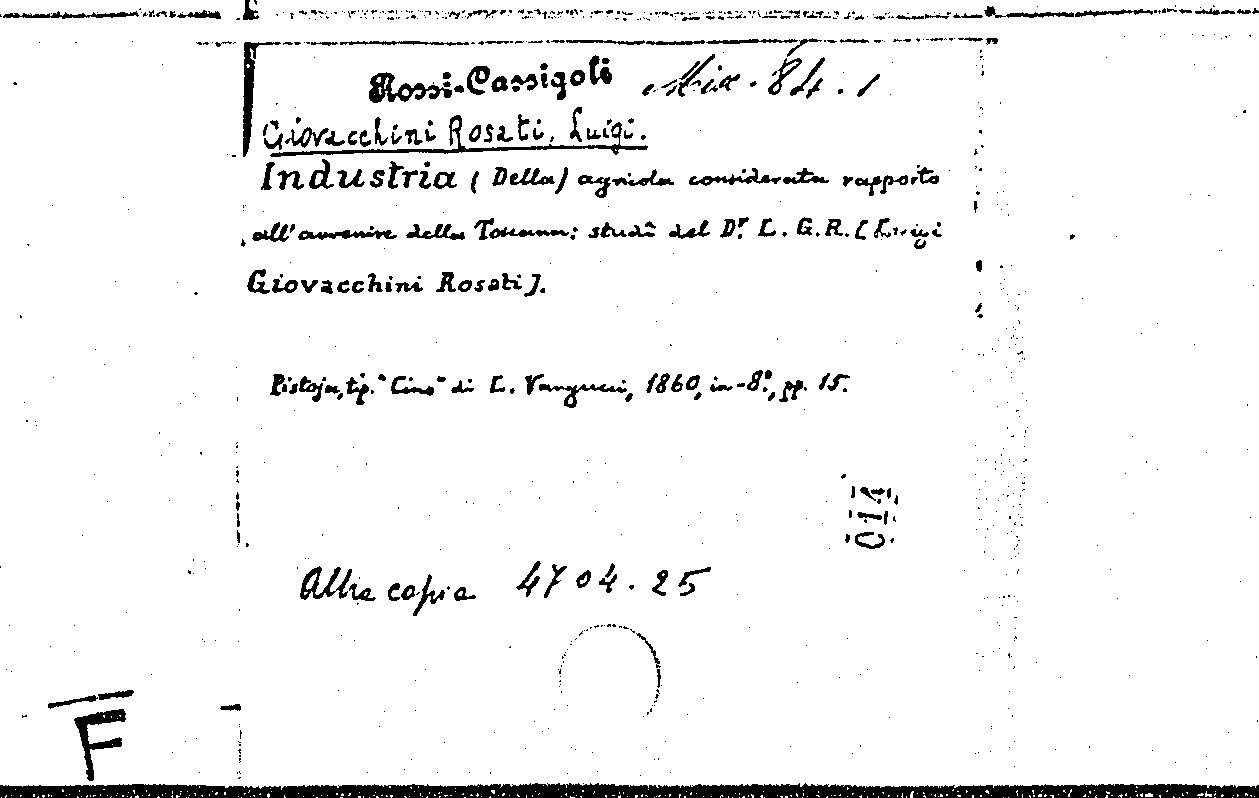 Rossi-Cassigoli Mix. 84. 1
Giovacchini Rosati, Luigi.
Industria (Della) agricola considerata rapporto
all'avvenire della Toscana: studî del Dr. L. G. R. [Luigi
Giovacchini Rosati].
Pistoja, tip. "Cino" di L. Vangucci, 1860, in-8º, pp. 15.
014
Altra copia 4704.25
F